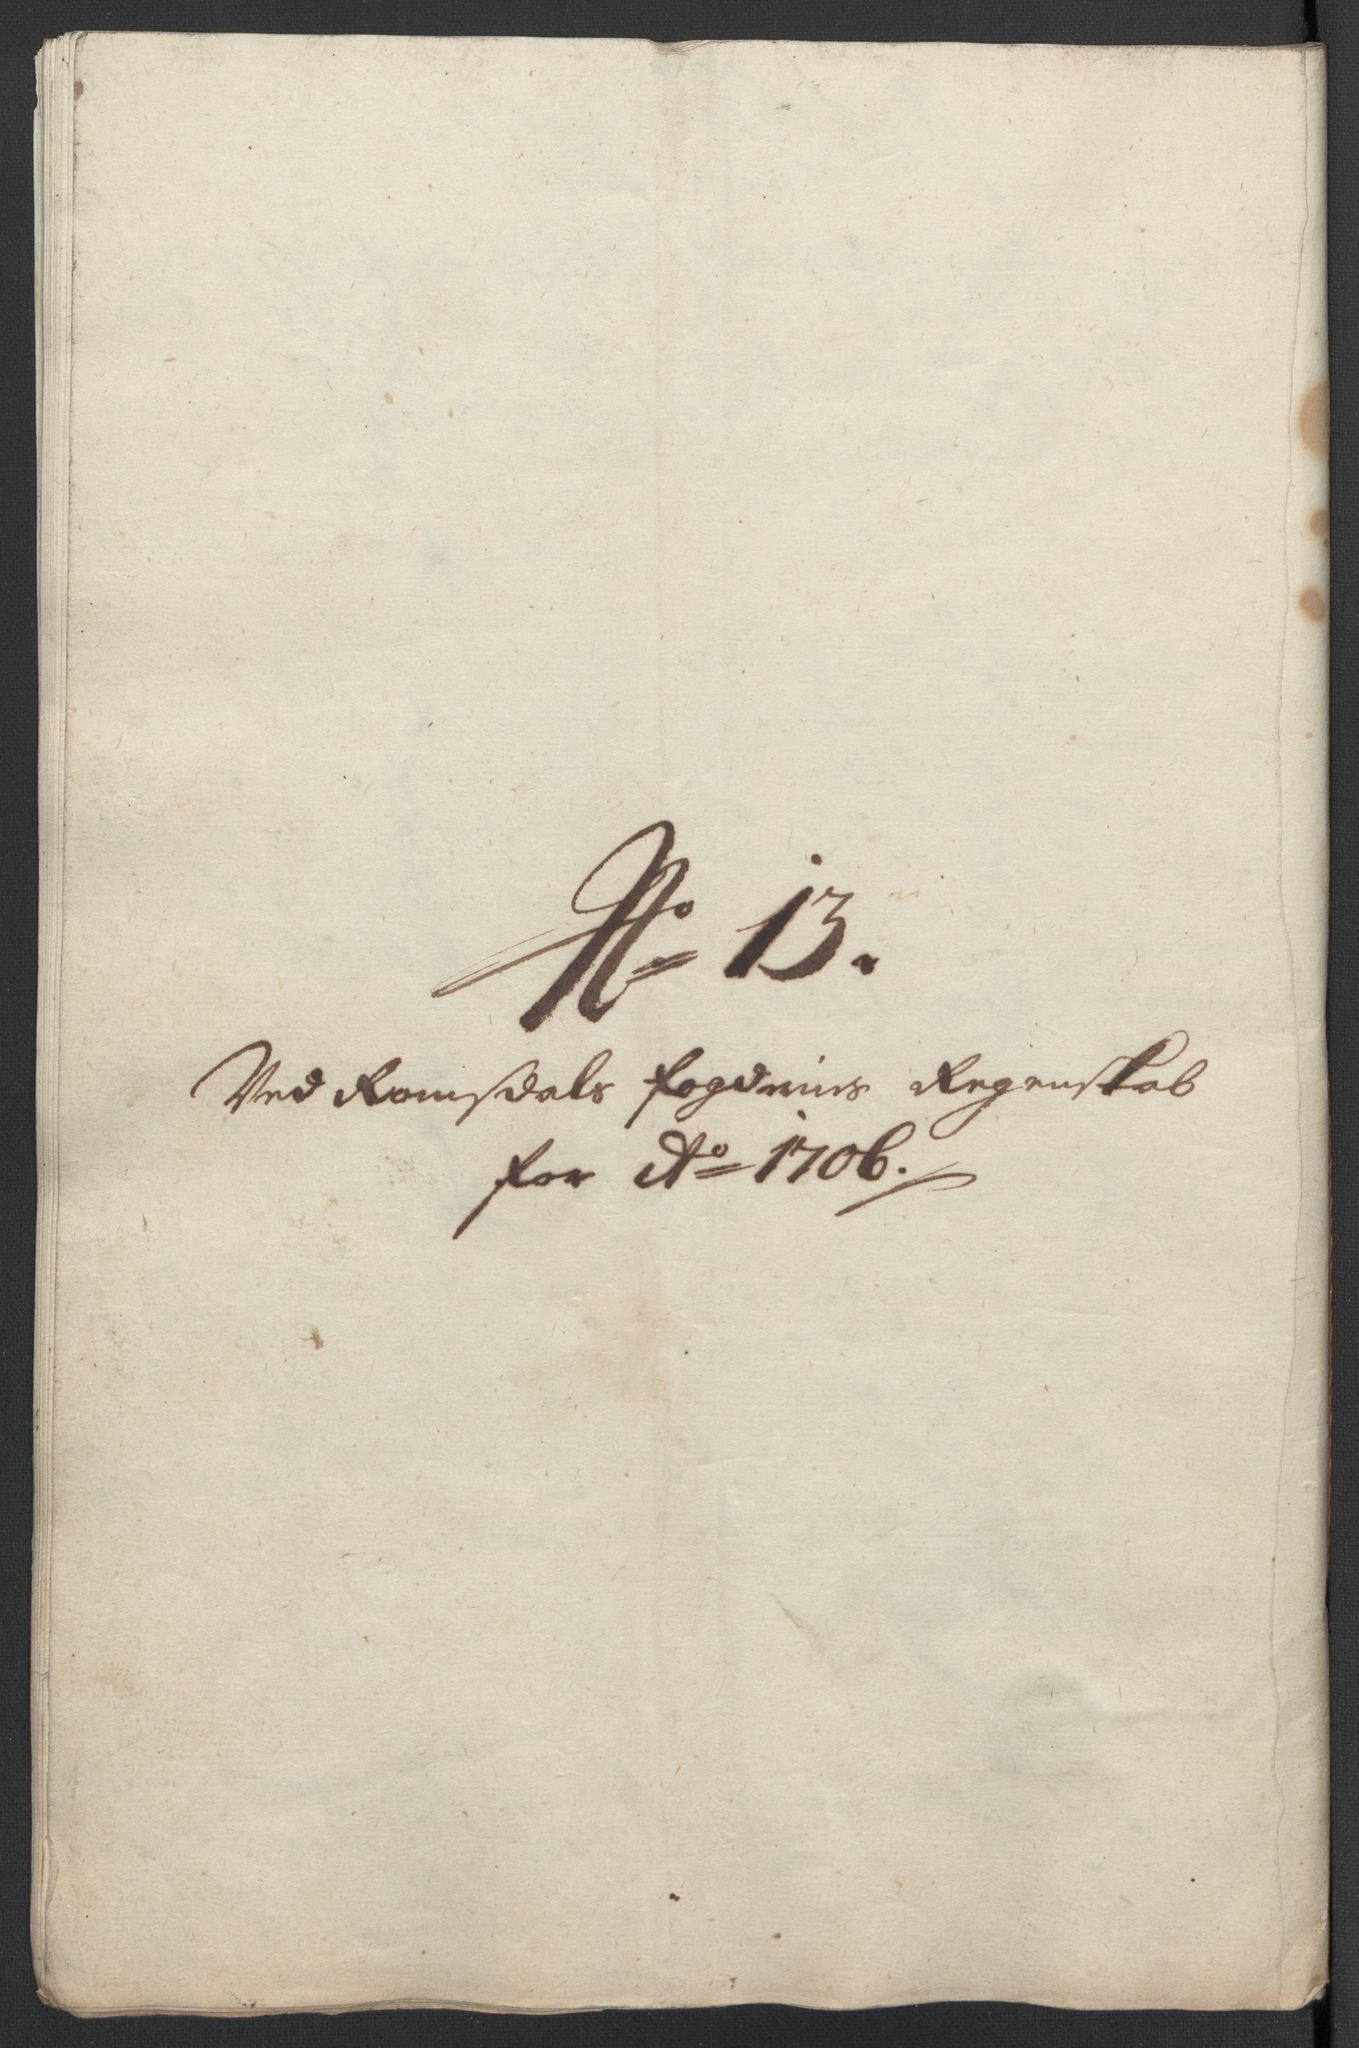 No 13.
Ved Romsdals fogderies Regenskab
for Ao 1706.